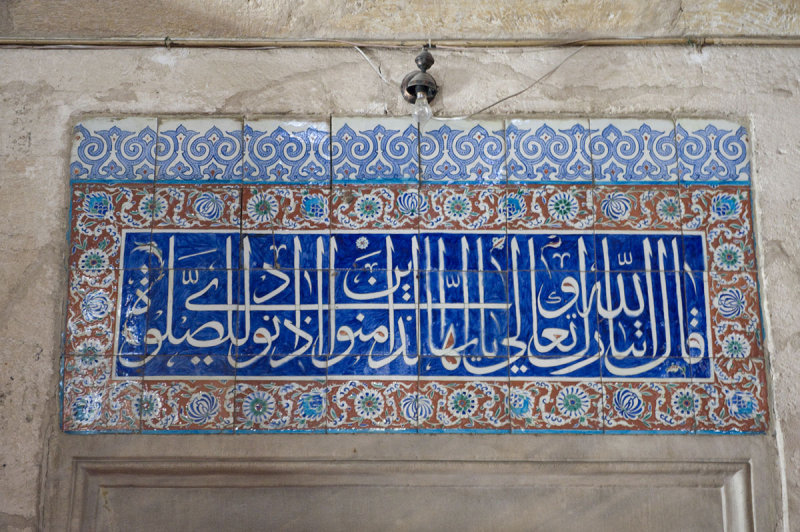 قال الله تبارك وتعالى يا ايها الذين امنوا اذا نودى للصلوة